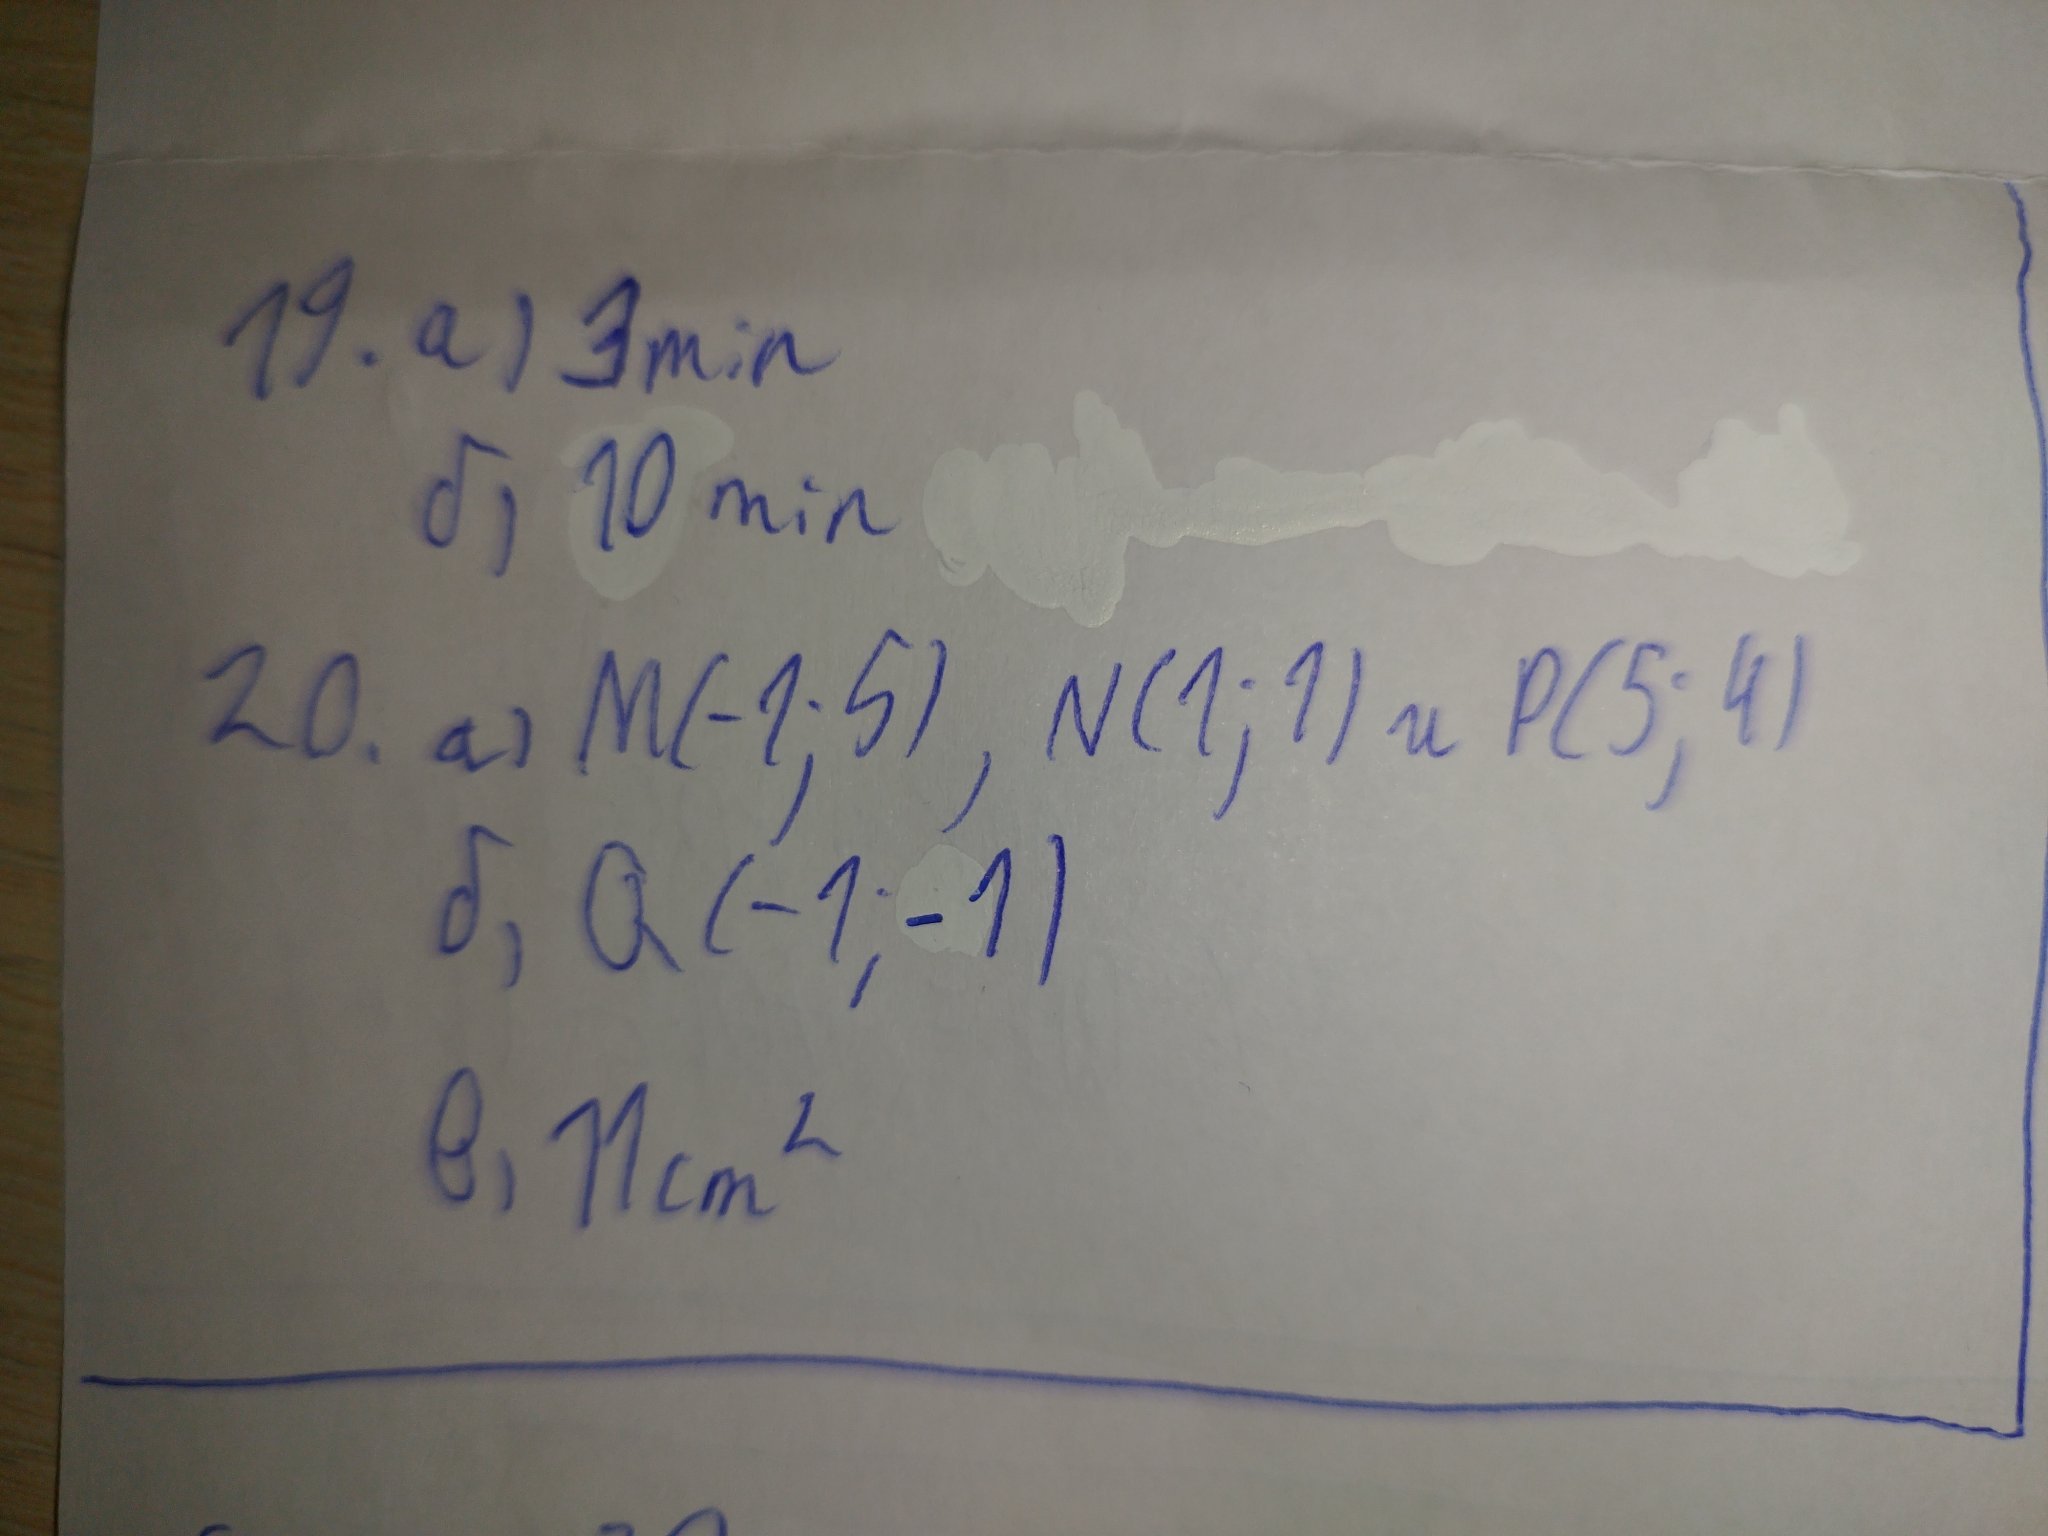 19. а) 3 min
б) 10 min
20. а) M(-1; 5), N(1; 1) и P(5; 4)
б) Q (-1; -1)
в) 11 cm²